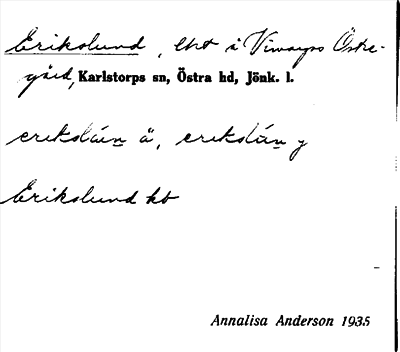 Erikslund, lht i Vimarps Östre-
gård, Karlstorps sn, Östra hd, Jönk. l.
erikslún å, erikslún y
Erikslund kb
Annalisa Anderson 1935